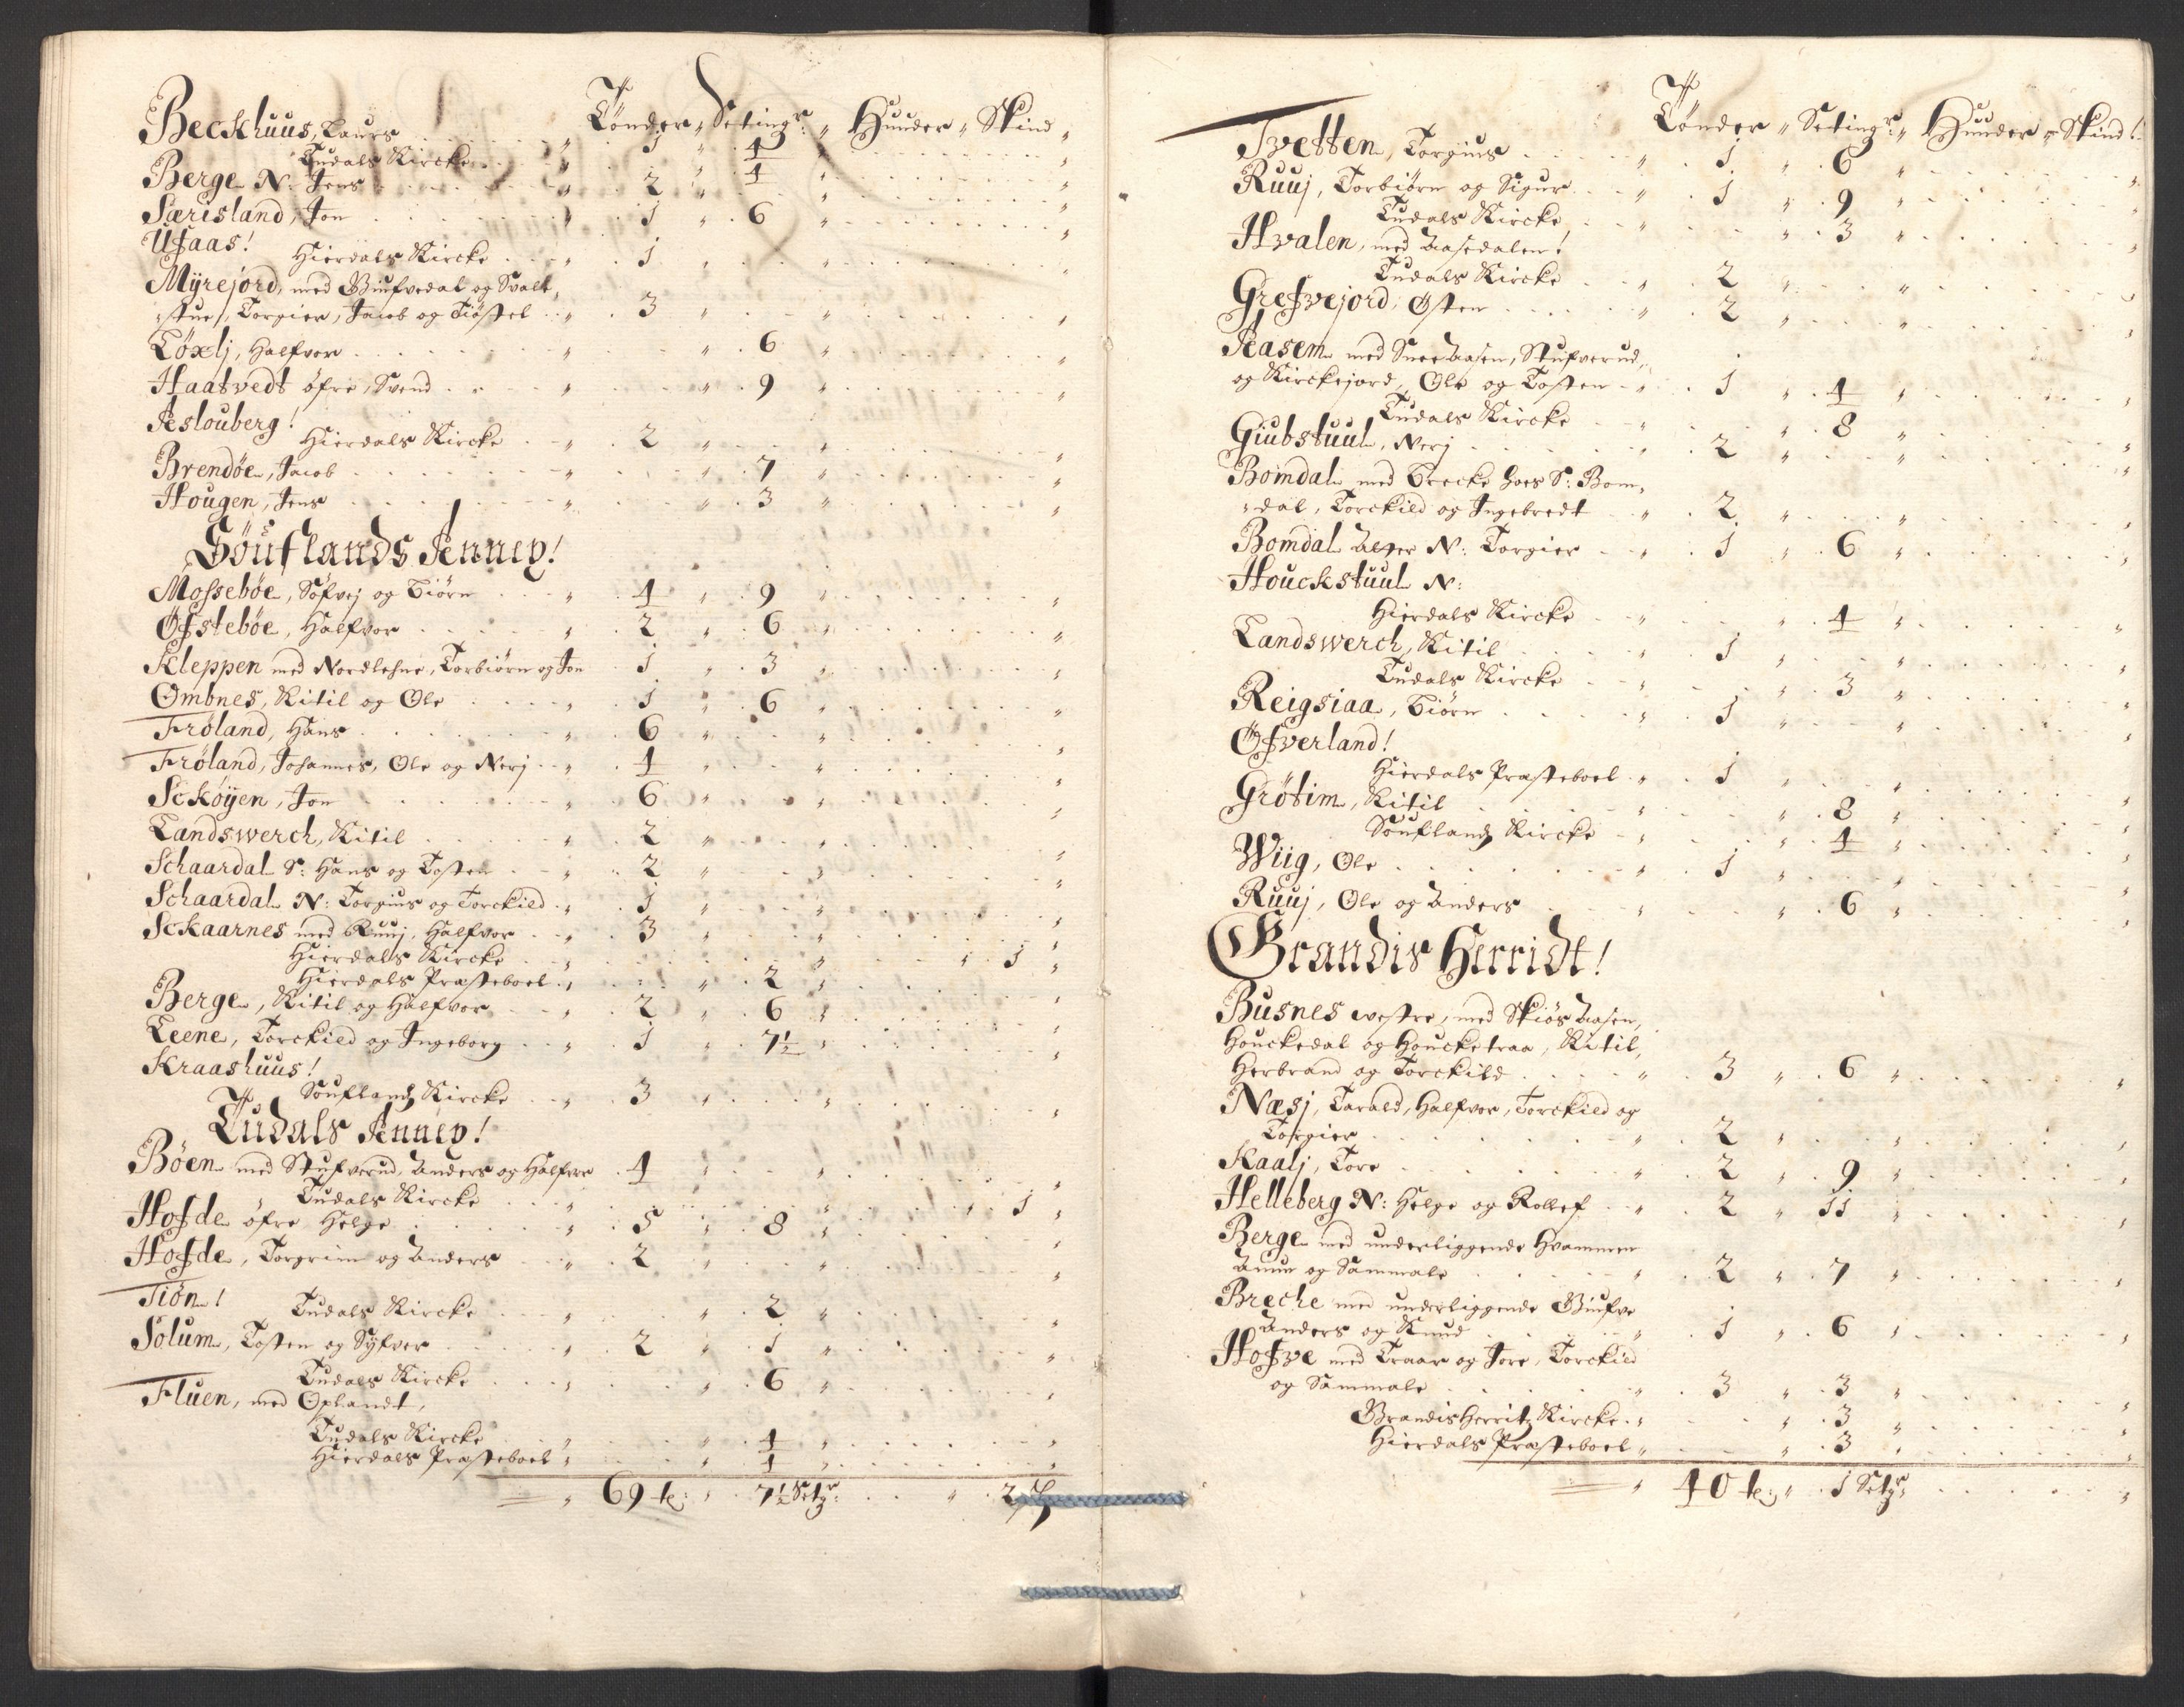 Tønder " Setingr: " Huuder " Skind "
Beckhuus, Laurs " 1 " 4 "
Tudals Kircke " " 4 "
Berge N: Jens " 2 "
Særisland, Jon " 1 " 6 "
Ufaas!
Hierdals Kircke " 1 "
Myrejord, med Giufvedal og Svalt,
stue, Torgier, Jacob og Tiøstel " 3 "
Løxlj, Halfvor " " 6 "
Haatvedt øfre, Svend " " 9 "
Jeslouberg!
Hierdals Kircke " 2 "
Brendøe, Jacob " " 7 "
Hougen, Jens " " 3 "
Søuflands Annex!
Mossebøe, Søfvej og Biørn " 4 " 9 "
Øfstebøe, Halfvor " 2 " 6 "
Kleppen med Nordlehne, Torbiørn og Jon 1 " 3 "
Ombnes, Kitil og Ole " 1 " 6 "
Frøland, Hans " 6 "
Frøland, Johannes, Ole og Nerj " 4 "
Sckøyen, Jon " 6 "
Landswerch, Kitil " 2 "
Schaardal S: Hans og Tosten " 2 "
Schaardal N: Torgius og Torckild " 1 "
Sckaarnes med Ruuj, Halfvor " 3 "
Hierdals Kircke " " 1 "
Hierdals Præsteboel " " 2 "
Berge, Kitil og Halfvor " 2 " 6 "
Leene, Torckild og Ingeborg " 1 " 7½ "
Kraashuus!
Søuflandz Kircke " 3 "
Tudals Annex!
Bøen med Stufverud, Anders og Halfvor 4 "
Tudals Kircke " " 1 "
Hofde øfre, Helge " 5 " 8 "
Hofde, Torgrim og Anders " 2 "
Tiøn!
Tudals Kircke " " 2 "
Solum, Tosten og Syfver " 2 " 1 "
Tudals Kircke " " 6 "
Fluen, med Oplandt,
Tudals Kircke " " 4 "
Hierdals Præsteboel " " 4 "
" 69 te: " 7½ Setgr: " 2
Tønder " Setingr: " Huuder " Skind!
Tvetten, Torgius " 1 " 6 "
Ruuj, Torbiørn og Sigur " 1 " 9 "
Tudals Kircke " " 3 "
Hvalen, med Aasedalen!
Tudals Kircke " 2 "
Grefvejord, Østen " 2 "
Aasem med Snee Aasen, Stufverud,
og Kirckejord, Ole og Tosten " 1 " 4 "
Tudals Kircke " " 8 "
Giubstuul, Nerj " 2 "
Bomdal med Brecke hoes S: Bom,
dal, Torckild og Ingebredt " 2 "
Bomdal N: Torgier " 1 " 6 "
Houckstuul N:
Hierdals Kircke " " 4 "
Landswerch, Kitil " 1 "
Tudals Kircke " " 3 "
Reigsiaa, Biørn " 1 "
Øfverland!
Hierdals Præsteboel " 1 "
Grøtim, Kitil " " 8 "
Søuflandz Kircke " " 4 "
Wiig, Ole " 1 "
Ruuj, Ole og Anders " " 6 "
Grandis Herridt!
Busnes westre, med Skiøs Aasen,
Houckedal og Houcketraa, Kitil,
Herbrand og Torckild " 3 " 6 "
Næsj, Tarald, Halfvor, Torckild og
Torgier " 2 "
Kaalj, Tore " 2 " 9 "
Helleberg N: Helge og Rollef " 2 " 11 "
Berge med underliggende Hvammen
Amun og Sammale " 2 " 7 "
Breche med underliggende Giufve
Anders og Knud " 1 " 6 "
Hofve med Traar og Jore, Torckild
og Sammale " 3 " 3 "
Grandis Herritz Kircke " " 3 "
Hierdals Præsteboel " " 3 "
" 40 te: " 1 Setgr: